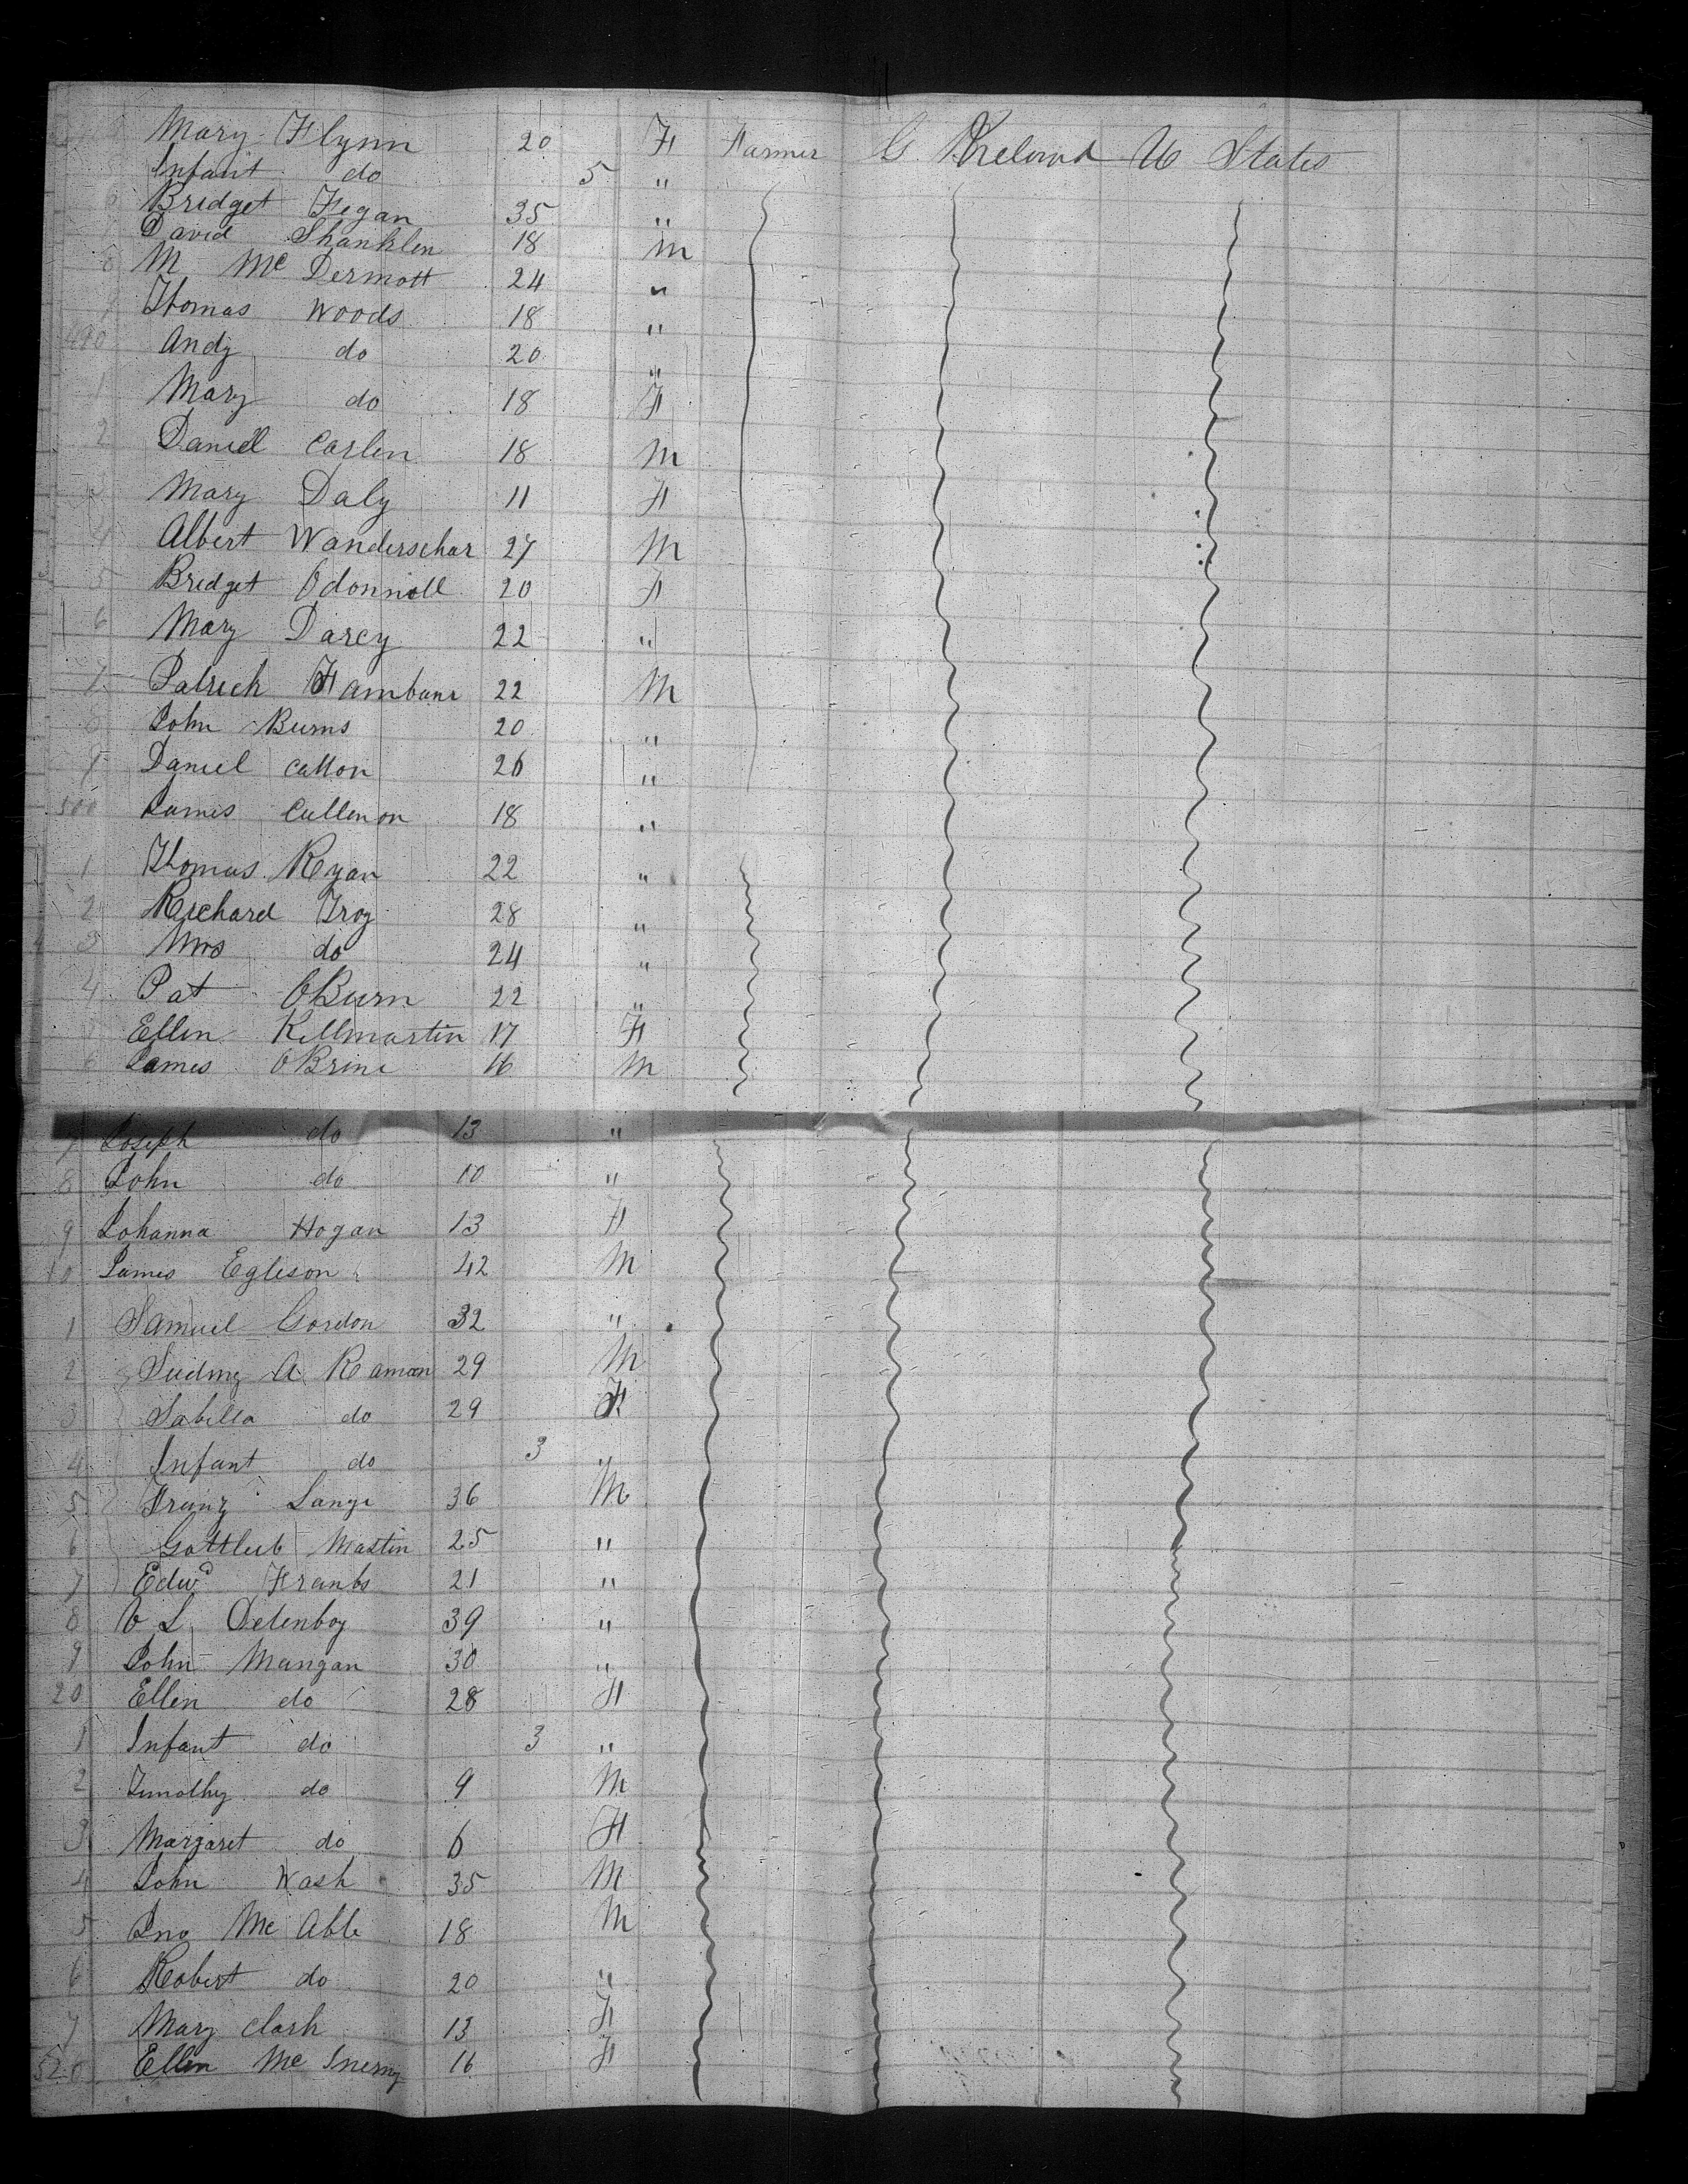 Mary Flynn 20 F Farmer G. Ireland U States
Infant do 5 "
6 Bridget Fegan 35 "
7 David Shanklen 18 M
8 M Mc Dermott 24 "
9 Thomas Woods 18 "
490 Andy do 20 "
1 Mary do 18 F
2 Daniel Carlen 18 M
3 Mary Daly 11 F
4 Albert Wanderschar 27 M
5 Bridget Odonnell 20 F
6 Mary Darcy 22 "
7 Patrick Hambane 22 M
8 John Burns 20 "
9 Daniel Catton 26 "
500 James Cullenon 18 "
1 Thomas Ryan 22 "
2 Richard Troy 28 "
3 Mrs do 24 "
4 Pat OBurn 22 "
5 Ellen Killmartin 17 F
6 James OBrine 16 M
7 Joseph do 13 "
8 John do 10 "
9 Johanna Hogan 13 F
10 James Egleson 42 M
1 Samuel Gordon 32 "
2 A Raman 29 M
3 Sabilla do 29 F
4 Infant do 3 "
5 Franz Lange 36 M
6 Gottleib Mastin 25 "
7 Edwd Frants 21 "
8 O L Oelenboy 39 "
9 John Mangan 30 "
20 Ellen do 28 F
1 Infant do 3 "
2 Timothy do 9 M
3 Margaret do 6 F
4 John Wash 35 M
5 Jno Mc Able 18 M
6 Robert do 20 "
7 Mary Clark 13 F
528 Ellen Mc Inerny 16 F